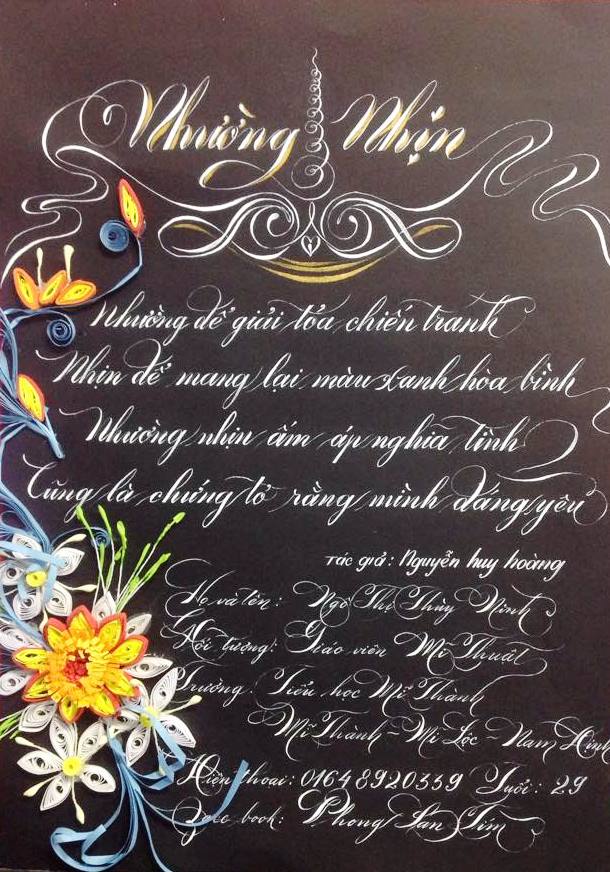 Nhường Nhịn
Nhường để giải tỏa chiến tranh
Nhịn để mang lại màu xanh hòa bình
Nhường nhịn ấm áp nghĩa tình
Cũng là chứng tỏ rằng mình đáng yêu
Tác giả: Nguyễn huy hoàng
Họ và tên: Ngô Thị Thùy Ninh
Đối tượng: Giáo viên Mĩ Thuật
Trường: Tiểu học Mĩ Thành
Mĩ Thành - Mĩ Lộc - Nam Định
Điện thoại: 01648920339 Tuổi: 29
Face book: Phong Lan Tím